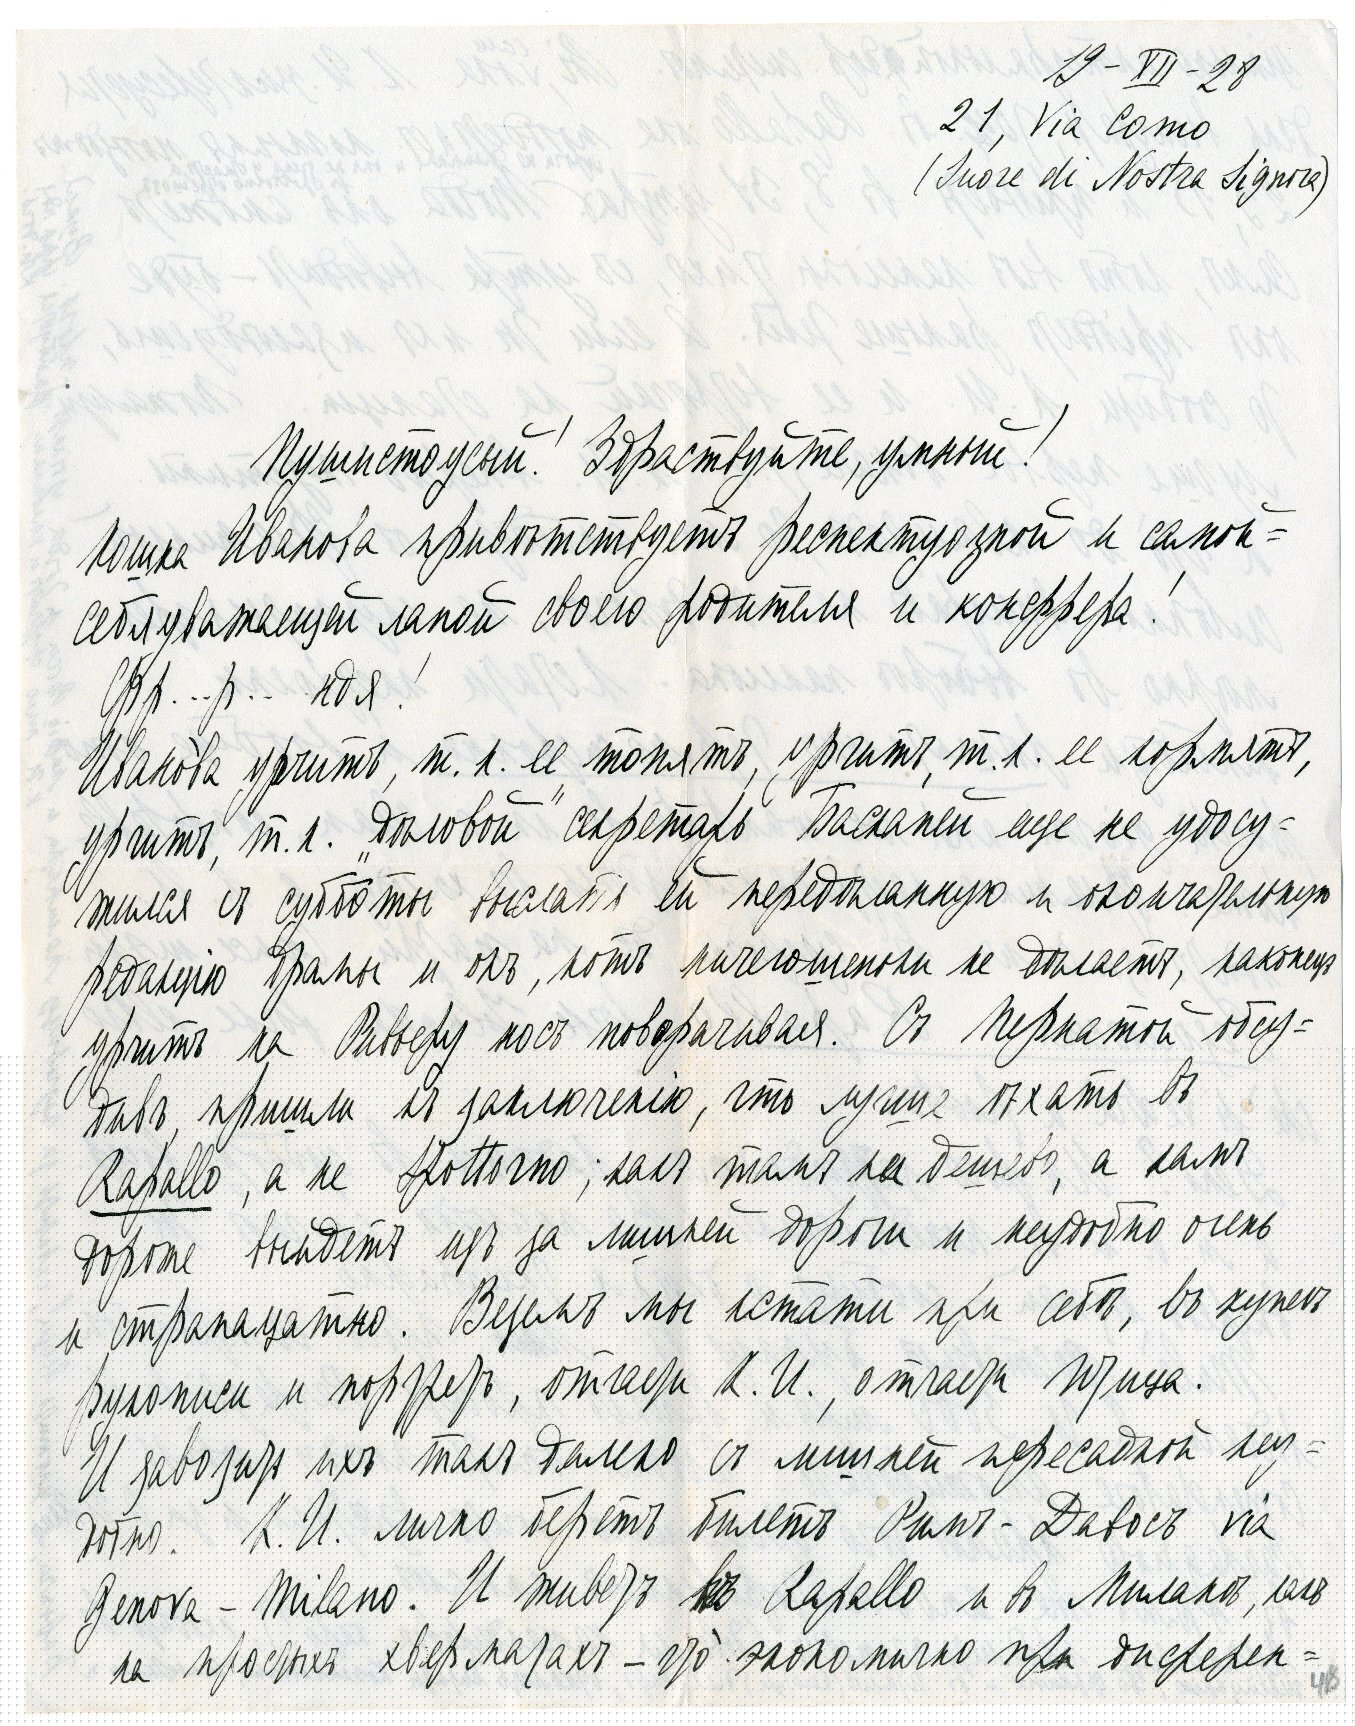 19 - VII - 28
21, Via Como
(Suore di Nostra Signora)
Пушистоусый! Здраствуйте, умный!
Кошка Иванова привѣтствуетъ респектуозной и самой=
себяуважающей лапой своего родителя и конфрера!
Фрр...р... ндя!
Иванова урчитъ, т.к. ее топятъ, урчитъ, т.к. ее кормятъ,
урчитъ, т.к. „дѣловой" секретарь Баскапей еще не удосу=
жился съ субботы выслать ей передѣланную и окончательную
редакцію драмы и онъ, котъ ничегошеньки не дѣлаетъ, наконецъ
урчитъ на Ривьеру носъ поворачивая. Съ Пернатой обсу=
дивъ, пришли къ заключенію, что лучше ѣхать въ
Rapallo, а не Spottorno; какъ тамъ ни дешево, а намъ
дороже выйдетъ изъ за лишней дороги и неудобно очень
и страпацатно. Веземъ мы кстати при себѣ, въ купеъ
рукописи и портфель, отчасти К.И., отчасти Птица.
И завозить ихъ такъ далеко съ лишней пересадкой неу=
добно. К.И. лично беретъ билетъ Римъ - Давосъ via
Genova - Milano. И живетъ въ Rapallo и въ Миланѣ, какъ
на простыхъ хверматахъ - что экономично при дифферен=
48